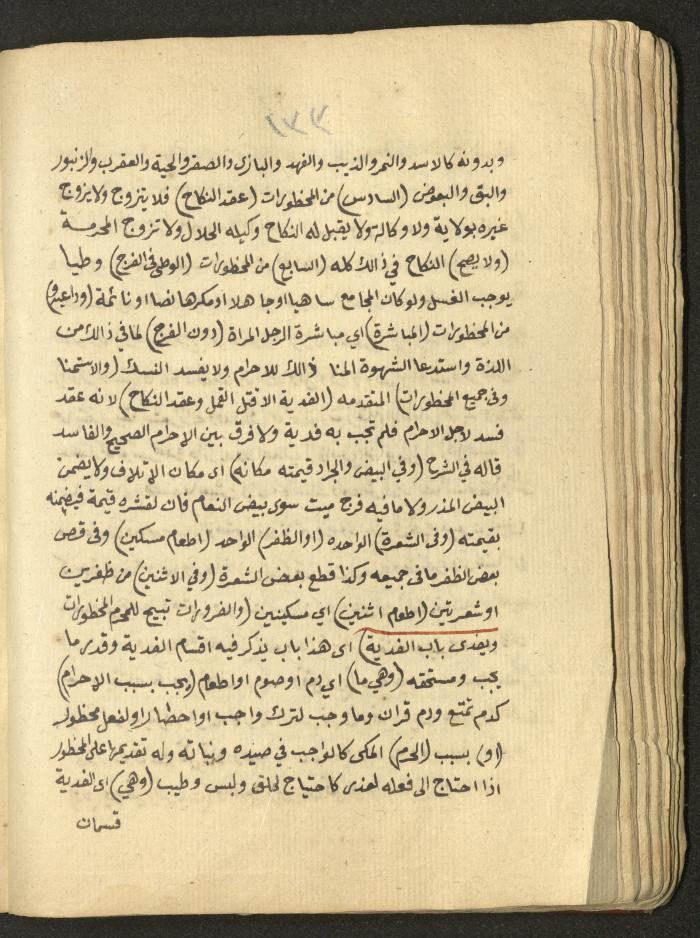 ١٣٣
وبدونه كالاسد والنمر والذيب والفهد والبازى والصقر والحية والعقرب والزنبور
والبق والبعوض (السادس) من المحظورات (عقد النكاح) فلا يتزوج ولا يزوج
غيره بولاية ولا وكالة ولا يقبل له النكاح وكيله الحلال ولا تزوج المحرمة
(ولا يصح) النكاح في ذالك كله (السابع) من المحظورات (الوطئ فى الفرج) وطيا
يوجب الغسل ولو كان المجامع ساهيا او جاهلا او مكرها نصا او نائمة (ودواعيه و)
من المحظورات (المباشرة) اي مباشرة الرجل المراة (دون الفرج) لما في ذالك من
اللذة واستدعا الشهوة المنا ذالك للاحرام ولا يفسد النسك (والاستمنا
وفى جميع المحظورات) المتقدمه (الفدية الا قتل القمل وعقد النكاح) لانه عقد
فسد لاجل الاحرام فلم تجب به فدية ولا فرق بين الإحرام الصحيح والفاسد
قاله في الشرح (وفي البيض والجراد قيمته مكانه) اى مكان الإتلاف ولا يضمن
البيض المذر ولا ما فيه فرخ ميت سوى بيض النعام فان لقشره قيمة فيضمنه
بقيمته (وفى الشعرة) الواحده (او الظفر) الواحد (اطعام مسكين) وفى قص
بعض الظفر ما فى جميعه وكذا قطع بعض الشعرة (وفي الاثنين) من ظفرين
او شعرتين (اطعام اثنين) اي مسكينين (والضرورات تبيح للمحرم المحظورات
ويفدى باب الفدية) اى هذا باب يذكر فيه اقسام الفدية وقدر ما
يجب ومستحقه (وهي ما) اي دم او صوم او اطعام (يجب بسبب الإحرام)
كدم تمتع ودم قران وما وجب لترك واجب او احصار او لفعل محظور
(او) بسبب (الحرم) المكى كالواجب في صيده ونباته وله تقديمها على المحظور
اذا احتاج الى فعله لعذر كاحتياج لحلق ولبس وطيب (وهي) اى الفدية
قسمان